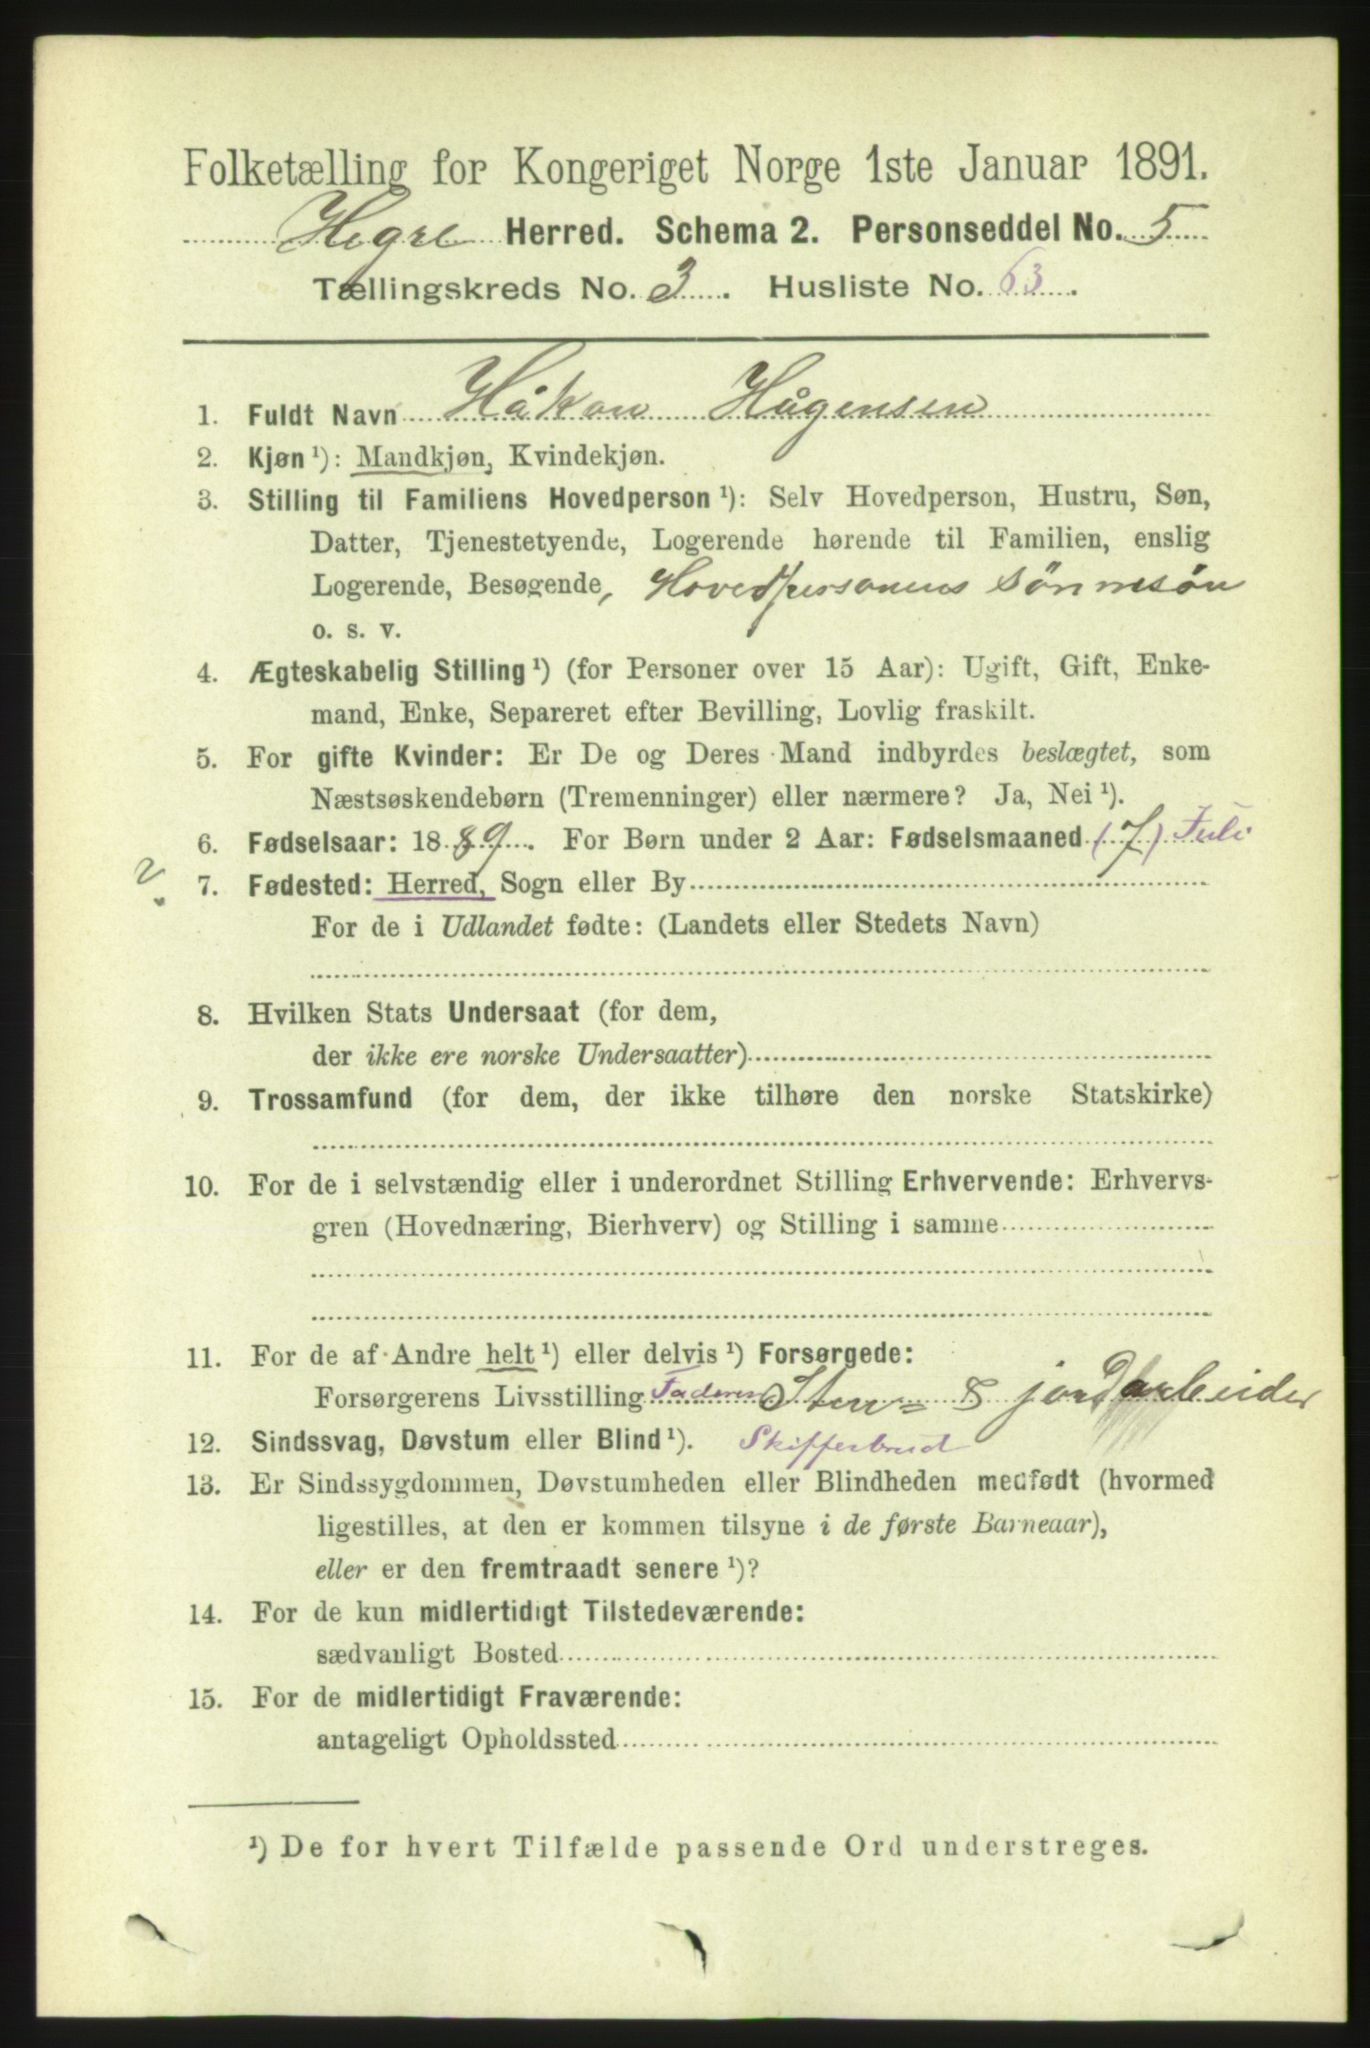 Folketælling for Kongeriget Norge 1ste Januar 1891.
Hegre Herred. Schema 2. Personseddel No. 5
Tællingskreds No. 3. Husliste No. 63.
1. Fuldt Navn Håkon Hågensen
2. Kjøn ¹): Mandkjøn, Kvindekjøn.
3. Stilling til Familiens Hovedperson ¹): Selv Hovedperson, Hustru, Søn,
Datter, Tjenestetyende, Logerende hørende til Familien, enslig
Logerende, Besøgende, Hovedpersonens sönnesön
o. s. v.
4. Ægteskabelig Stilling ¹) (for Personer over 15 Aar): Ugift, Gift, Enke-
mand, Enke, Separeret efter Bevilling, Lovlig fraskilt.
5. For gifte Kvinder: Er De og Deres Mand indbyrdes beslægtet, som
Næstsøskendebørn (Tremenninger) eller nærmere? Ja, Nei ¹).
6. Fødselsaar: 1889. For Børn under 2 Aar: Fødselsmaaned (7) Juli
7. Fødested: Herred, Sogn eller By
For de i Udlandet fødte: (Landets eller Stedets Navn)
8. Hvilken Stats Undersaat (for dem,
der ikke ere norske Undersaatter)
9. Trossamfund (for dem, der ikke tilhøre den norske Statskirke)
10. For de i selvstændig eller i underordnet Stilling Erhvervende: Erhvervs-
gren (Hovednæring, Bierhverv) og Stilling i samme
11. For de af Andre helt ¹) eller delvis ¹) Forsørgede:
Forsørgerens Livsstilling Faderen Sten= & jordarbeider
12. Sindssvag, Døvstum eller Blind ¹). Skifferbrud
13. Er Sindssygdommen, Døvstumheden eller Blindheden medfødt (hvormed
ligestilles, at den er kommen tilsyne i de første Barneaar),
eller er den fremtraadt senere ¹)?
14. For de kun midlertidigt Tilstedeværende:
sædvanligt Bosted
15. For de midlertidigt Fraværende:
antageligt Opholdssted
¹) De for hvert Tilfælde passende Ord understreges.